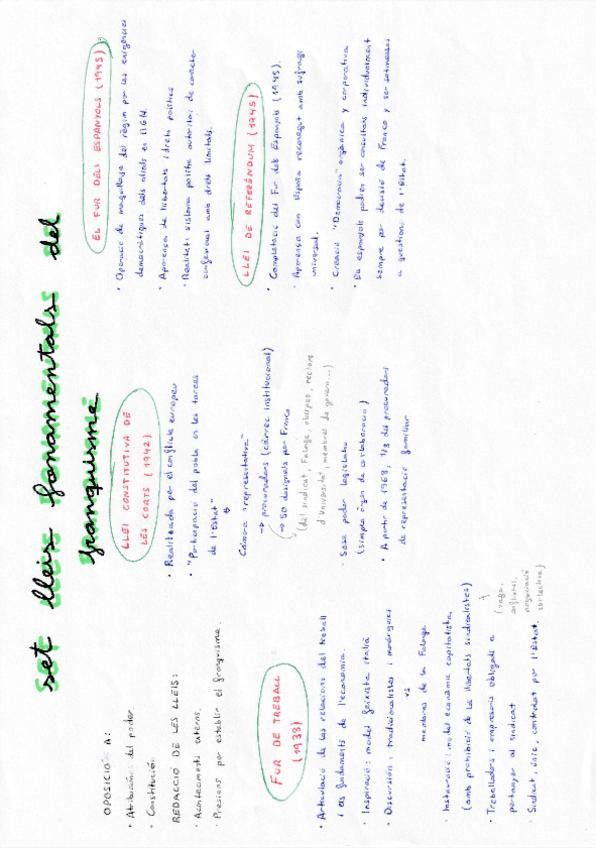 set lleis fonamentals del
franquisme
OPOSICIÓ A:
· Atribucions del poder
· Constitució
REDACCIÓ DE LES LLEIS:
· Aconteciments externs.
· Pressions per establir el franquisme.
FUR DE TREBALL
(1938)
· Articulació de les relacions del treball
i els fonaments de l'economia.
· Inspiració: model feixista italià
· Discursión: tradicionalistes i monàrquics
vs
membres de la Falange
· Instauració: model econòmic capitalista,
(amb prohibició de les llibertats sindicalistes)
· Treballadors i empresaris obligats a
pertanyer al sindicat
(vaga,
negociació
col·lectiva)
· Sindicat, únic, controlat per l'Estat.
LLEI CONSTITUTIVA DE
LES CORTS (1942)
· Realitzada pel conflicte europeu
· "Participació del poble en les tasces
de l'Estat"
Càmara "representativa"
→ procuradors (càrrec institucional)
→ 50 designats per Franco
(del sindicat, Falange, obispos, rectors
d'Universitat, membres de govern...)
· Sese poder legislatiu
(simple òrgan de col·laboració)
· A partir de 1968, 1/3 dels procuradors
de representació familiar
EL FUR DELS ESPANYOLS (1945)
· Operació de maquillatge del règim per les exigències
democràtiques dels aliats en II G.M.
· Aparença de llibertats i drets polítics
· Realitat: sistema polític autoritari, de caràcter
confesional amb drets limitats.
LLEI DE REFERÈNDUM (1945)
· Completació del Fur dels Espanyols (1945).
· Aparença con España reconegut amb sufragi
universal.
· Creació "Democràcia" orgànica y corporativa
· Els espanyols podien ser consultats individualment
sempre per decisió de Franco y ser sotmesos
a qüestions de l'Estat.